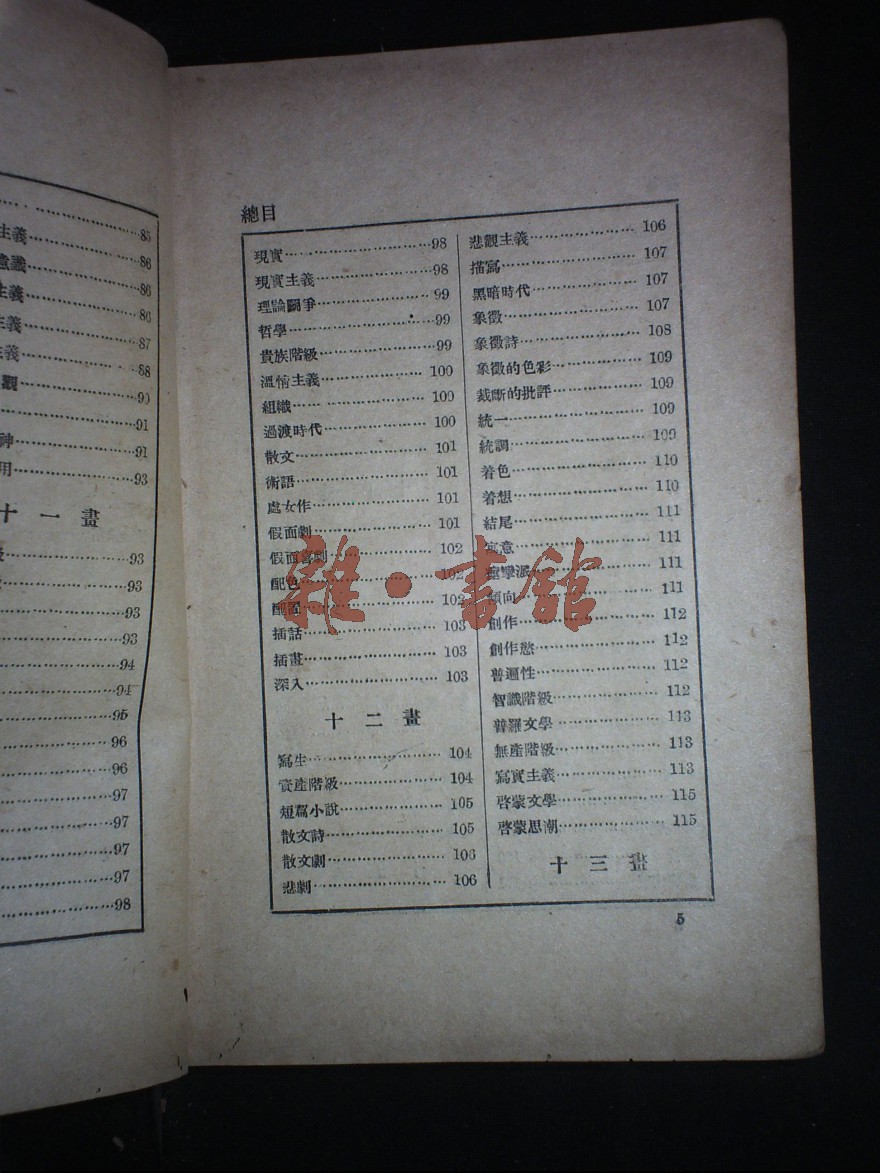 85
主義……86
意識……86
主義……86
主義……87
主義……88
觀……90
……91
神……91
用……93
十一畫
級……93
……93
……93
……93
……94
……94
……95
……96
……96
……97
……97
……97
……97
……98
總目
現實……98
現實主義……98
理論鬭爭……99
哲學……99
貴族階級……99
溫情主義……100
組織……100
過渡時代……100
散文……101
術語……101
處女作……101
假面劇……101
假面喜劇……102
配色……102
配置……102
插話……103
插畫……103
深入……103
十二畫
寫生……104
資產階級……104
短篇小說……105
散文詩……105
散文劇……106
悲劇……106
悲觀主義……106
描寫……107
黑暗時代……107
象徵……107
象徵詩……108
象徵的色彩……109
裁斷的批評……109
統一……109
統調……109
着色……110
着想……110
結尾……111
寓意……111
痙攣派……111
傾向……111
創作……112
創作慾……112
普遍性……112
智識階級……112
普羅文學……113
無產階級……113
寫實主義……113
啓蒙文學……115
啓蒙思潮……115
十三畫
5
雜·書館